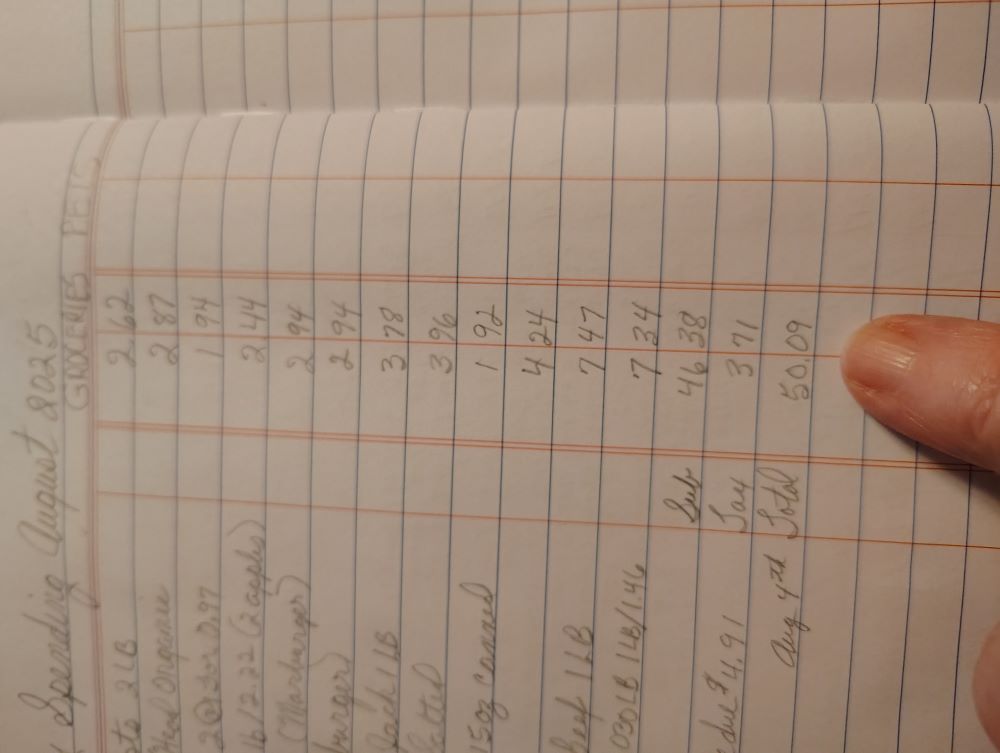 Spending August 2025
GROCERIES PETS
2 LB 2 62
Organic 2 87
2@ 0.97 1 94
lb/2.22 (2 apples) 2 44
(Marburger) 2 94
burger) 2 94
1 LB 3 78
3 96
15 oz canned 1 92
4 24
Beef 1 LB 7 47
LB 1 LB/1.46 7 34
Sub 46 38
due $4.91 Tax 3 71
Aug 4th Total 50.09